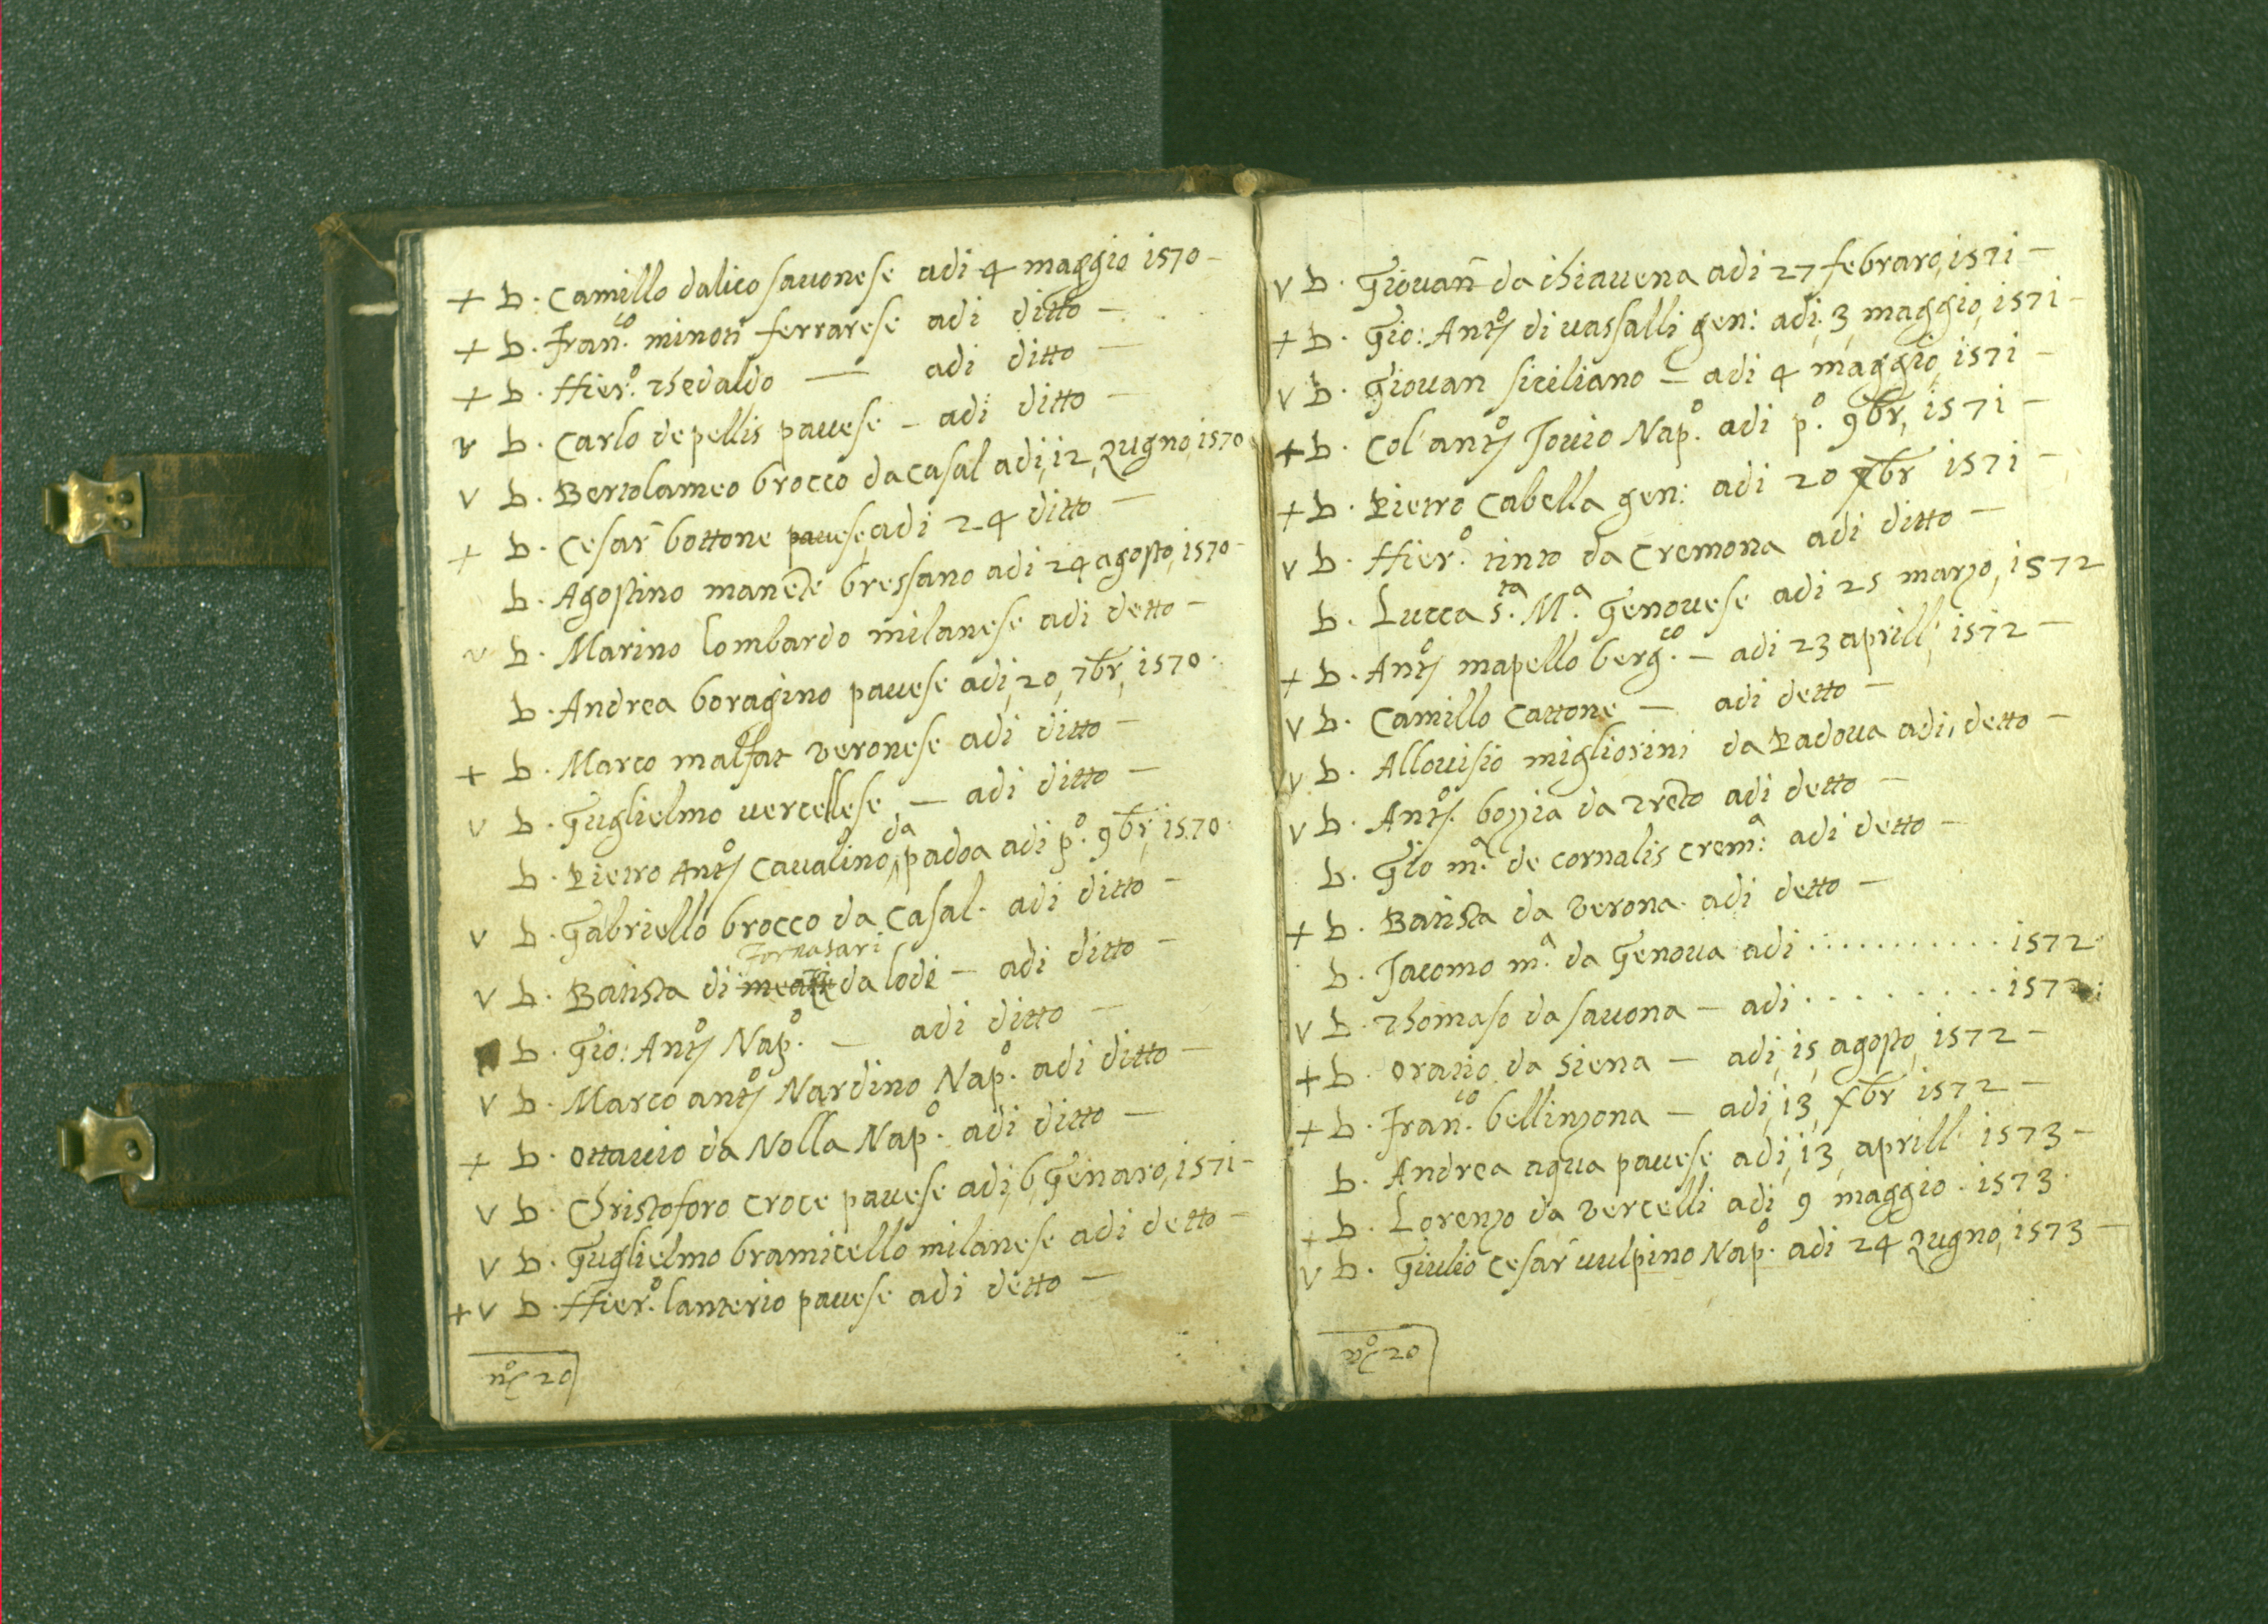 + b. Camillo dalico savonese adi 4 maggio 1570 —
+ b. Fran.co minoti ferrarese adi ditto —
+ b. Hier.o Thedaldo — adi ditto —
v b. Carlo de pellis pavese — adi ditto —
v b. Bertolameo brocco da casal adi, 12, zugno, 1570
+ b. Cesar bottone pavese, adi 24 ditto —
b. Agostino manēte bressano adi 24 agosto, 1570 —
v b. Marino lombardo milanese adi detto —
b. Andrea boragino pavese adi, 20, 7br, 1570.
+ b. Marco malfat veronese adi ditto —
v b. Guglielmo vercellese — adi ditto —
b. Pietro Ant.o Cavalino da padoa adi p.o 9br, 1570.
v b. Gabriello brocco da Casal. adi ditto —
Fornasari
v b. Batista di da lodi — adi ditto —
b. Gio: Ant.o Nap.o — adi ditto —
v b. Marco ant.o Nardino Nap.o adi ditto —
+ b. Ottavio da Nolla Nap.o adi ditto —
v b. Christoforo Croce pavese adi, 6, Genaro, 1571 —
v b. Guglielmo bramicello milanese adi detto —
+ v b. Hier.o lanterio pavese adi detto —
n.o 20
v b. Giovañ da chiavena adi 27 febraro, 1571 —
+ b. Gio: Ant.o di vassalli gen: adi, 3, maggio, 1571 —
v b. Giovan siciliano — adi 4 maggio, 1571 —
+ b. Col'ant.o Jovio Nap.o adi p.o 9br, 1571 —
+ b. Pietro Cabella gen: adi 20 xbr 1571 —
v b. Hier.o tinto da Cremona adi ditto —
b. Lucca S.ta M.a Genovese adi 25 marzo, 1572
+ b. Ant.o mapello berg.co — adi 23 aprill, 1572 —
v b. Camillo Cattone — adi detto —
v b. Allovisio migliorini da Padova adi, detto —
v b. Ant.o bozzia da Trēto adi detto —
b. Gio m.a de cornalis crem.a adi detto —
+ b. Batista da verona adi detto —
b. Jacomo m.a da Genova adi . . . . . . . . . . . 1572
v b. Thomaso da savona — adi . . . . . . . . . 1572
+ b. Oratio da Siena — adi, 15, agosto, 1572 —
+ b. Fran.co bellinzona — adi, 13, xbr 1572 —
b. Andrea aqua pavese adi, 13, aprill 1573 —
+ b. Lorenzo da vercelli adi 9 maggio. 1573.
v b. Giulio Cesar vulpino Nap.o adi 24 zugno, 1573 —
n.o 20